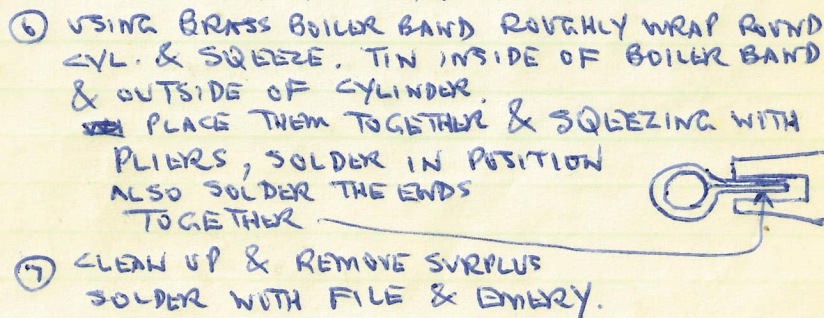 ⑥ USING BRASS BOILER BAND ROUGHLY WRAP ROUND
CYL. & SQEEZE. TIN INSIDE OF BOILER BAND
& OUTSIDE OF CYLINDER.
PLACE THEM TOGETHER & SQEEZING WITH
PLIERS, SOLDER IN POSITION
ALSO SOLDER THE ENDS
TOGETHER
⑦ CLEAN UP & REMOVE SURPLUS
SOLDER WITH FILE & EMERY.